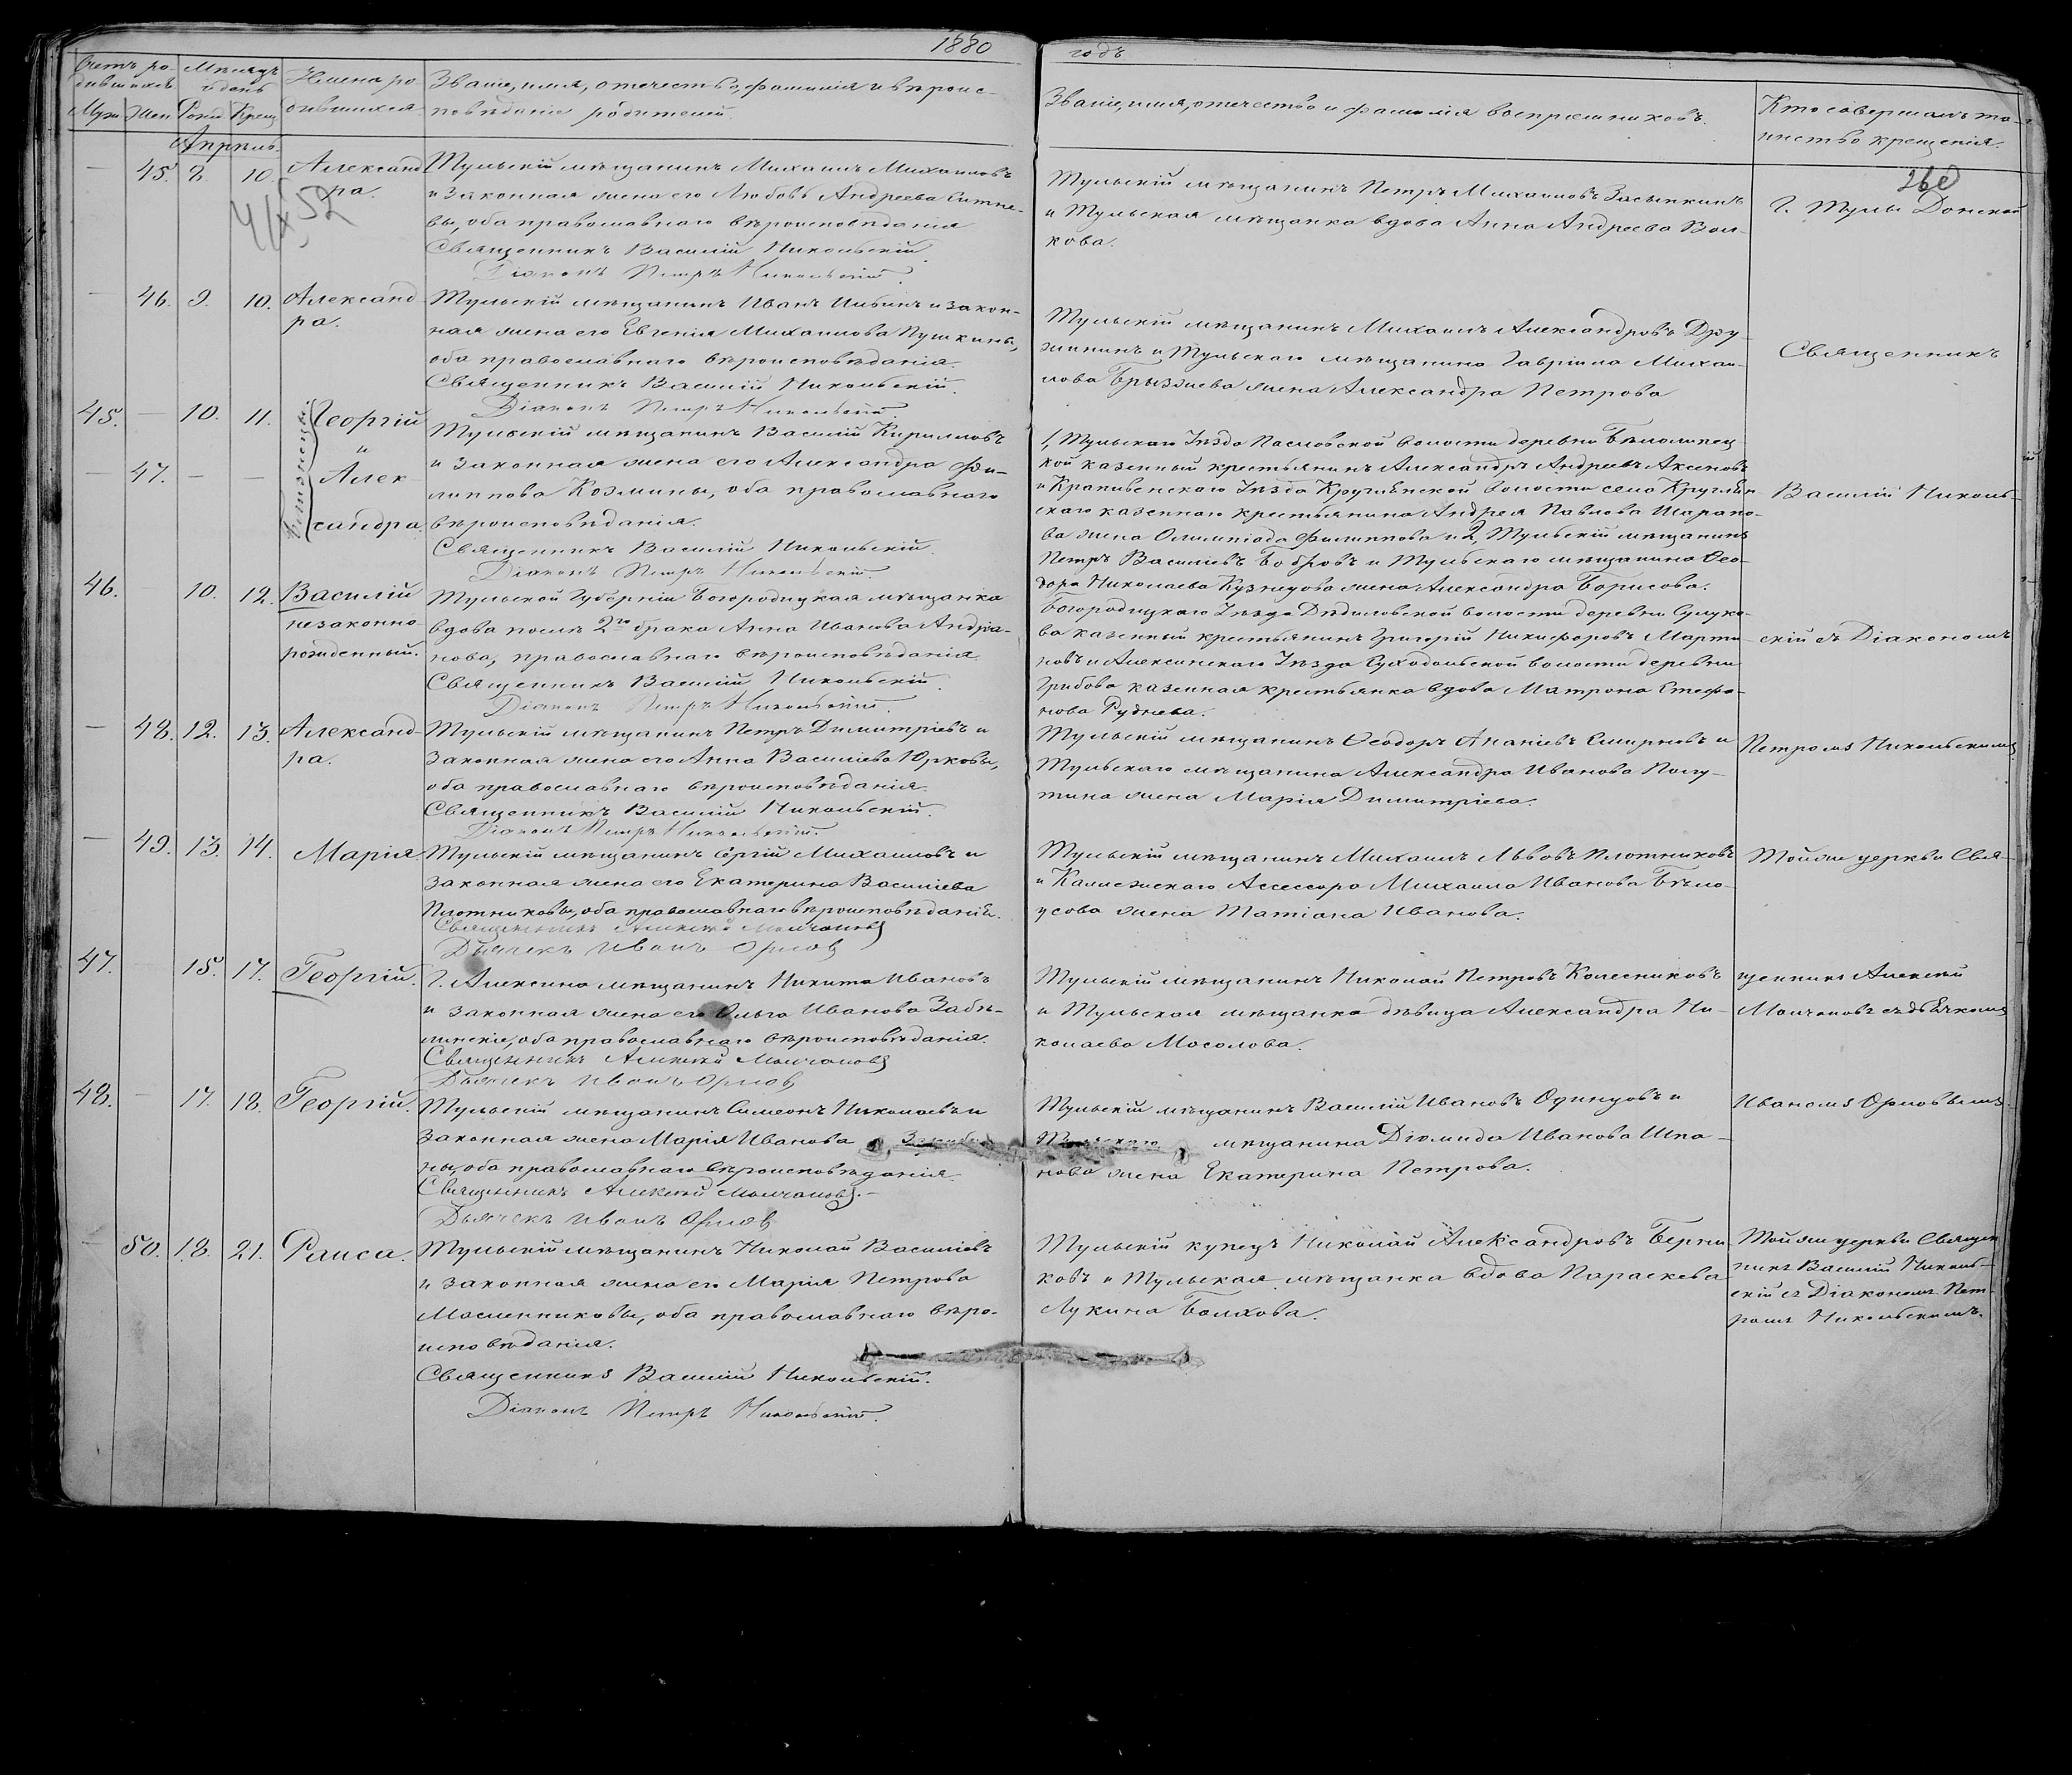 1880
годъ
Счетъ ро-
дившихся
Муж. Жен.
Мѣсяцъ
и день
Рожд. Крещ.
Имена ро
дившихся
Званіе, имя, отечество, фамилія и вѣроис-
повѣданіе родителей.
Званіе, имя, отечество и фамилія воспріемниковъ.
Кто совершалъ та-
инство крещенія.
Апрѣль.
— 45. 8. 10. Александ
ра.
Тульскій мѣщанинъ Михаилъ Михаиловъ
и законная жена его Любовь Андреева Ситне-
вы, оба православнаго вѣроисповѣданія
Священникъ Василій Никольскій.
Діаконъ Петръ Никольскій.
Тульскій мѣщанинъ Петръ Михаиловъ Засыпкинъ
и Тульская мѣщанка вдова Анна Андреева Вол-
кова.
Г. Тулы Донской
— 46. 9. 10. Александ
ра.
Тульскій мѣщанинъ Иванъ Ильинъ и закон-
ная жена его Евгенія Михаилова Пушкины,
оба православнаго вѣроисповѣданія.
Священникъ Василій Никольскій.
Діаконъ Петръ Никольскій.
Тульскій мѣщанинъ Михаилъ Александровъ Дру-
жининъ и Тульскаго мѣщанина Гавріила Михаи-
лова Брызжева жена Александра Петрова
Священникъ
45. — 10. 11. близнецы. Георгій
и
— 47. — — Алек
сандра
Тульскій мѣщанинъ Василій Кирилловъ
и законная жена его Александра Фи-
липпова Козмины, оба православнаго
вѣроисповѣданія.
Священникъ Василій Никольскій.
Діаконъ Петръ Никольскій.
1, Тульскаго Уѣзда Пасловской волости деревни Бѣлолипец
кой казенный крестьянинъ Александръ Андреевъ Аксеновъ
и Крапивенскаго Уѣзда Кругленской волости села Круглен
скаго казеннаго крестьянина Андрея Павлова Шарапо-
ва жена Олимпіада Филиппова и 2, Тульскій мѣщанинъ
Петръ Василіевъ Бобровъ и Тульскаго мѣщанина Ѳео-
дора Николаева Кузнецова жена Александра Борисова.
Василій Николь-
46. — 10. 12. Василій
незаконно-
рожденный.
Тульской Губерніи Богородицкая мѣщанка
вдова послѣ 2го брака Анна Иванова Андріа-
нова, православнаго вѣроисповѣданія.
Священникъ Василій Никольскій.
Діаконъ Петръ Никольскій.
Богородицкаго Уѣзда Дѣдиловской волости деревни
ва казенный крестьянинъ Григорій Никифоровъ Марти
новъ и Алексинскаго Уѣзда Суходольской волости деревни
Грибова казенная крестьянка вдова Матрона Стефа-
нова Руднева.
скій съ Діакономъ
— 48. 12. 13. Александ-
ра.
Тульскій мѣщанинъ Петръ Димитріевъ и
законная жена его Анна Василіева Юрковы,
оба православнаго вѣроисповѣданія.
Священникъ Василій Никольскій.
Діаконъ Петръ Никольскій.
Тульскій мѣщанинъ Ѳеодоръ Ананіевъ Смирновъ и
Тульскаго мѣщанина Александра Иванова Полу-
тина жена Марія Димитріева.
Петромъ Никольскимъ
— 49. 13. 14. Марія.
Тульскій мѣщанинъ Сергій Михаиловъ и
законная жена его Екатерина Василіева
Плотниковы, оба православнаго вѣроисповѣданія.
Священникъ Алексей Молчановъ
Дьячекъ Иванъ Орловъ
Тульскій мѣщанинъ Михаилъ Львовъ Плотниковъ
и Коллежскаго Ассессора Михаила Иванова Бѣло-
усова жена Татіана Иванова.
Тойже церкви Свя-
47. — 15. 17. Георгій.
Г. Алексина мѣщанинъ Никита Ивановъ
и законная жена его Ольга Иванова Забѣ-
линскіе, оба православнаго вѣроисповѣданія.
Священникъ Алексей Молчановъ
Дьячекъ Иванъ Орловъ
Тульскій мѣщанинъ Николай Петровъ Колесниковъ
и Тульская мѣщанка дѣвица Александра Ни-
колаева Мосолова.
щенникъ Алексей
Молчановъ съ дьячкомъ
48. — 17. 18. Георгій.
Тульскій мѣщанинъ Симеонъ Николаевъ и
законная жена Марія Иванова
ны, оба православнаго вѣроисповѣданія.
Священникъ Алексей Молчановъ.
Дьячекъ Иванъ Орловъ
Тульскій мѣщанинъ Василій Ивановъ Одинцовъ и
Тульскаго мѣщанина Діомида Иванова Шпа-
нова жена Екатерина Петрова.
Иваномъ Орловымъ.
— 50. 18. 21. Раиса.
Тульскій мѣщанинъ Николай Василіевъ
и законная жена его Марія Петрова
Масленниковы, оба православнаго вѣро-
исповѣданія.
Священникъ Василій Никольскій.
Діаконъ Петръ Никольскій.
Тульскій купецъ Николай Александровъ Берни
ковъ и Тульская мѣщанка вдова Параскева
Лукина Болхова.
Тойже церкви Священ
никъ Василій Николь-
скій съ Діакономъ Пет-
ромъ Никольскимъ.